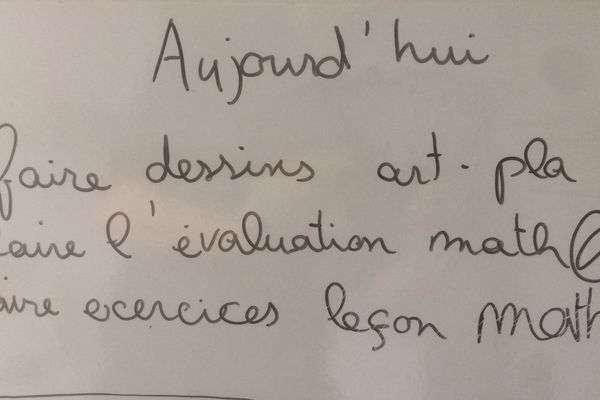 Aujourd'hui
faire dessins art. pla
faire l'évaluation math
aire excercices leçon Math